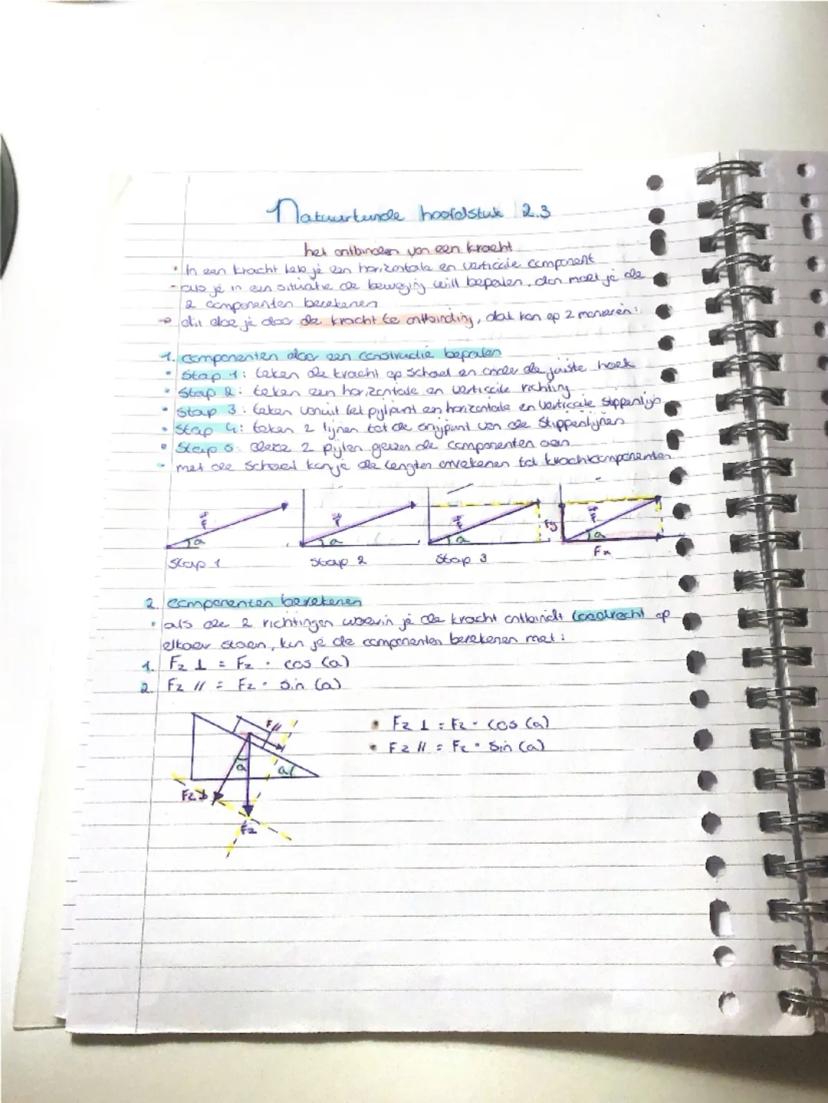 Natuurkunde hoofdstuk 2.3
het ontbinden van een kracht
• In een kracht heb je een horizontale en verticale component
- als je in een situatie de beweging will bepalen, dan moet je de
2 componenten berekenen
→ dit doe je door de kracht te ontbinding, dat kan op 2 manieren:
1. componenten door een constructie bepalen
• Stap 1: teken de kracht op schaal en onder de juiste hoek
• Stap 2: teken een horizontale en verticale richting
• Stap 3: teken vanuit het pijlpunt een horizontale en verticale stippenlijn
• Stap 4: teken 2 lijnen tot de snijpunt van de stippenlijnen
• Stap 5: deze 2 pijlen geven de componenten aan
• met de schaal kan je de lengten omrekenen tot krachtcomponenten
F a
F a
F a
Fy F a
Fx
Stap 1 Stap 2 Stap 3
2. componenten berekenen
• als de 2 richtingen waarin je de kracht ontbindt loodrecht op
elkaar staan, kun je de componenten berekenen met:
1. Fz ⊥ = Fz · cos (a)
2. Fz // = Fz · sin (a)
• Fz ⊥ = Fz · cos (a)
• Fz // = Fz · sin (a)
F//
a a
Fz⊥
Fz